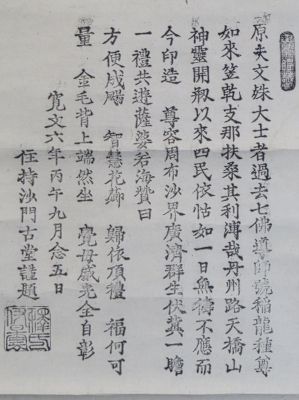 原夫文殊大士者過去七佛導師號稱龍種尊
如來竺乾支那扶桑其利溥哉丹州路天橋山
神靈開刱以來四民依怙如一日無禱不應而
今印造　尊容周布沙界廣濟群生伏冀一瞻
一禮共遊薩婆若海贊曰
方便成陽　智慧花蘂　歸依頂禮　福何可
量　金毛背上端然坐　覺母威光全自彰
寛文六年丙午九月念五日
住持沙門古堂謹題